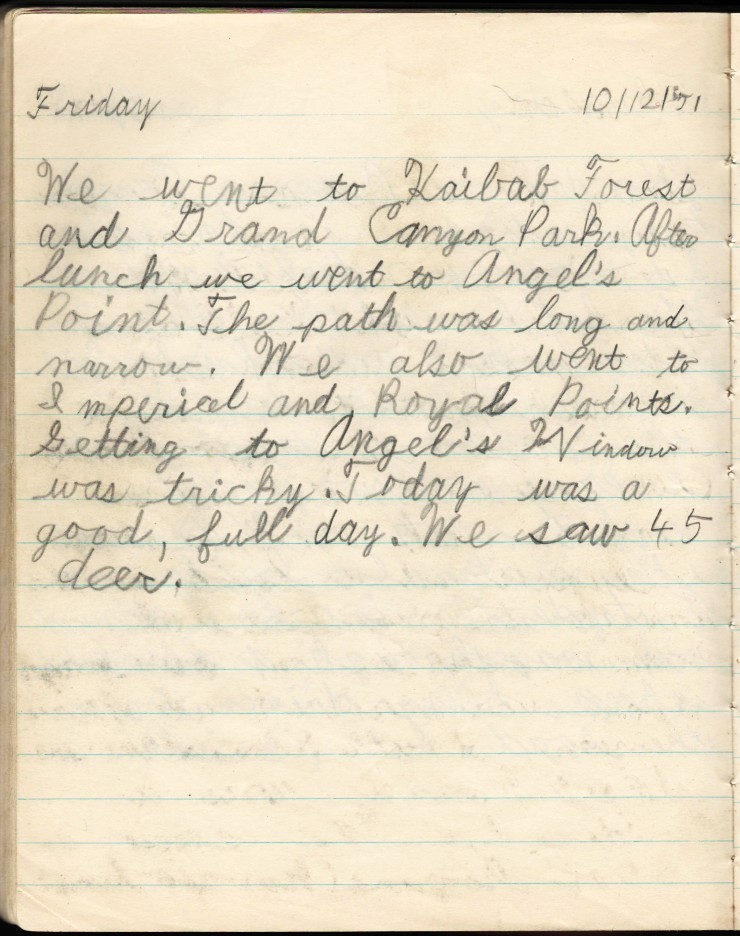 Friday 10/12/51
We went to Kaibab Forest
and Grand Canyon Park. After
lunch we went to Angel's
Point. The path was long and
narrow. We also went to
Imperial and Royal Points.
Getting to Angel's Window
was tricky. Today was a
good, full day. We saw 45
deer.